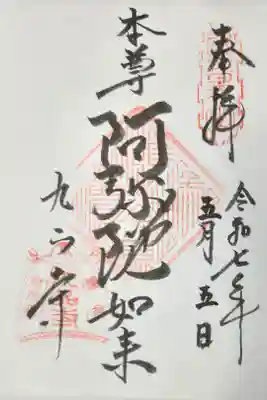 奉拝
令和七年
五月五日
本尊
阿弥陀如来